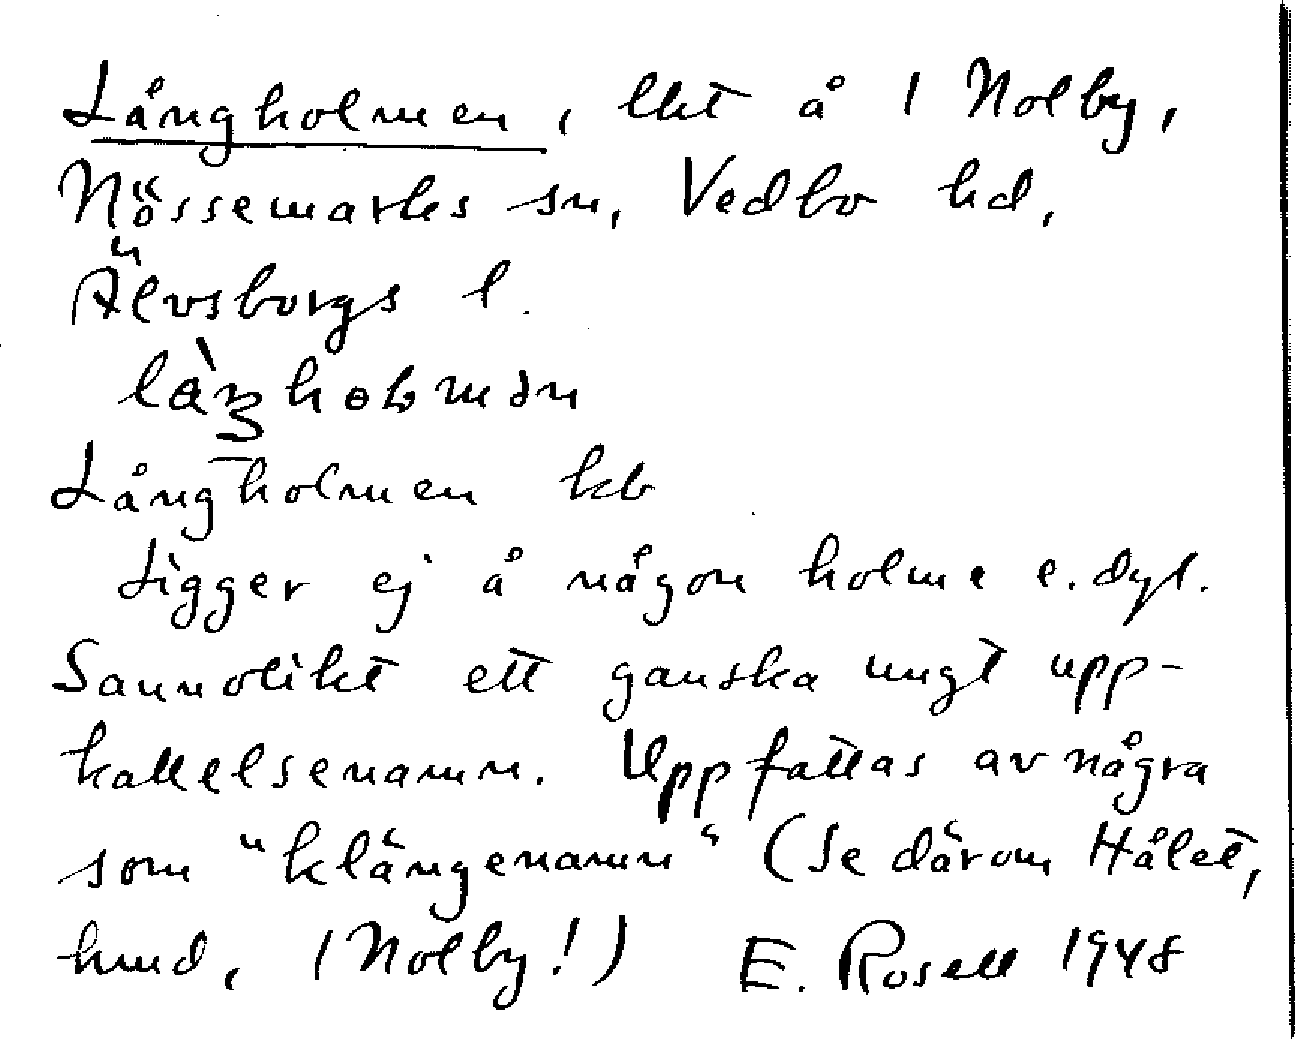 Långholmen, lht å 1 Nolby,
Nössemarks sn, Vedbo hd,
Älvsborgs l.
Långholmen kb
Ligger ej å någon holme e. dyl.
Sannolikt ett ganska ungt upp-
kallelsenamn. Uppfattas av några
som "klängenamn" (Se därom Hålet,
hmd, 1 Nolby!) E. Rosell 1948